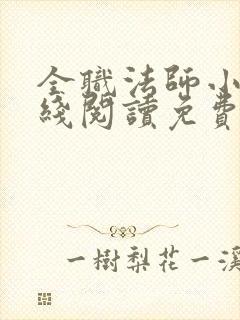 全職法師小
綫閱讀免費
一樹梨花一溪